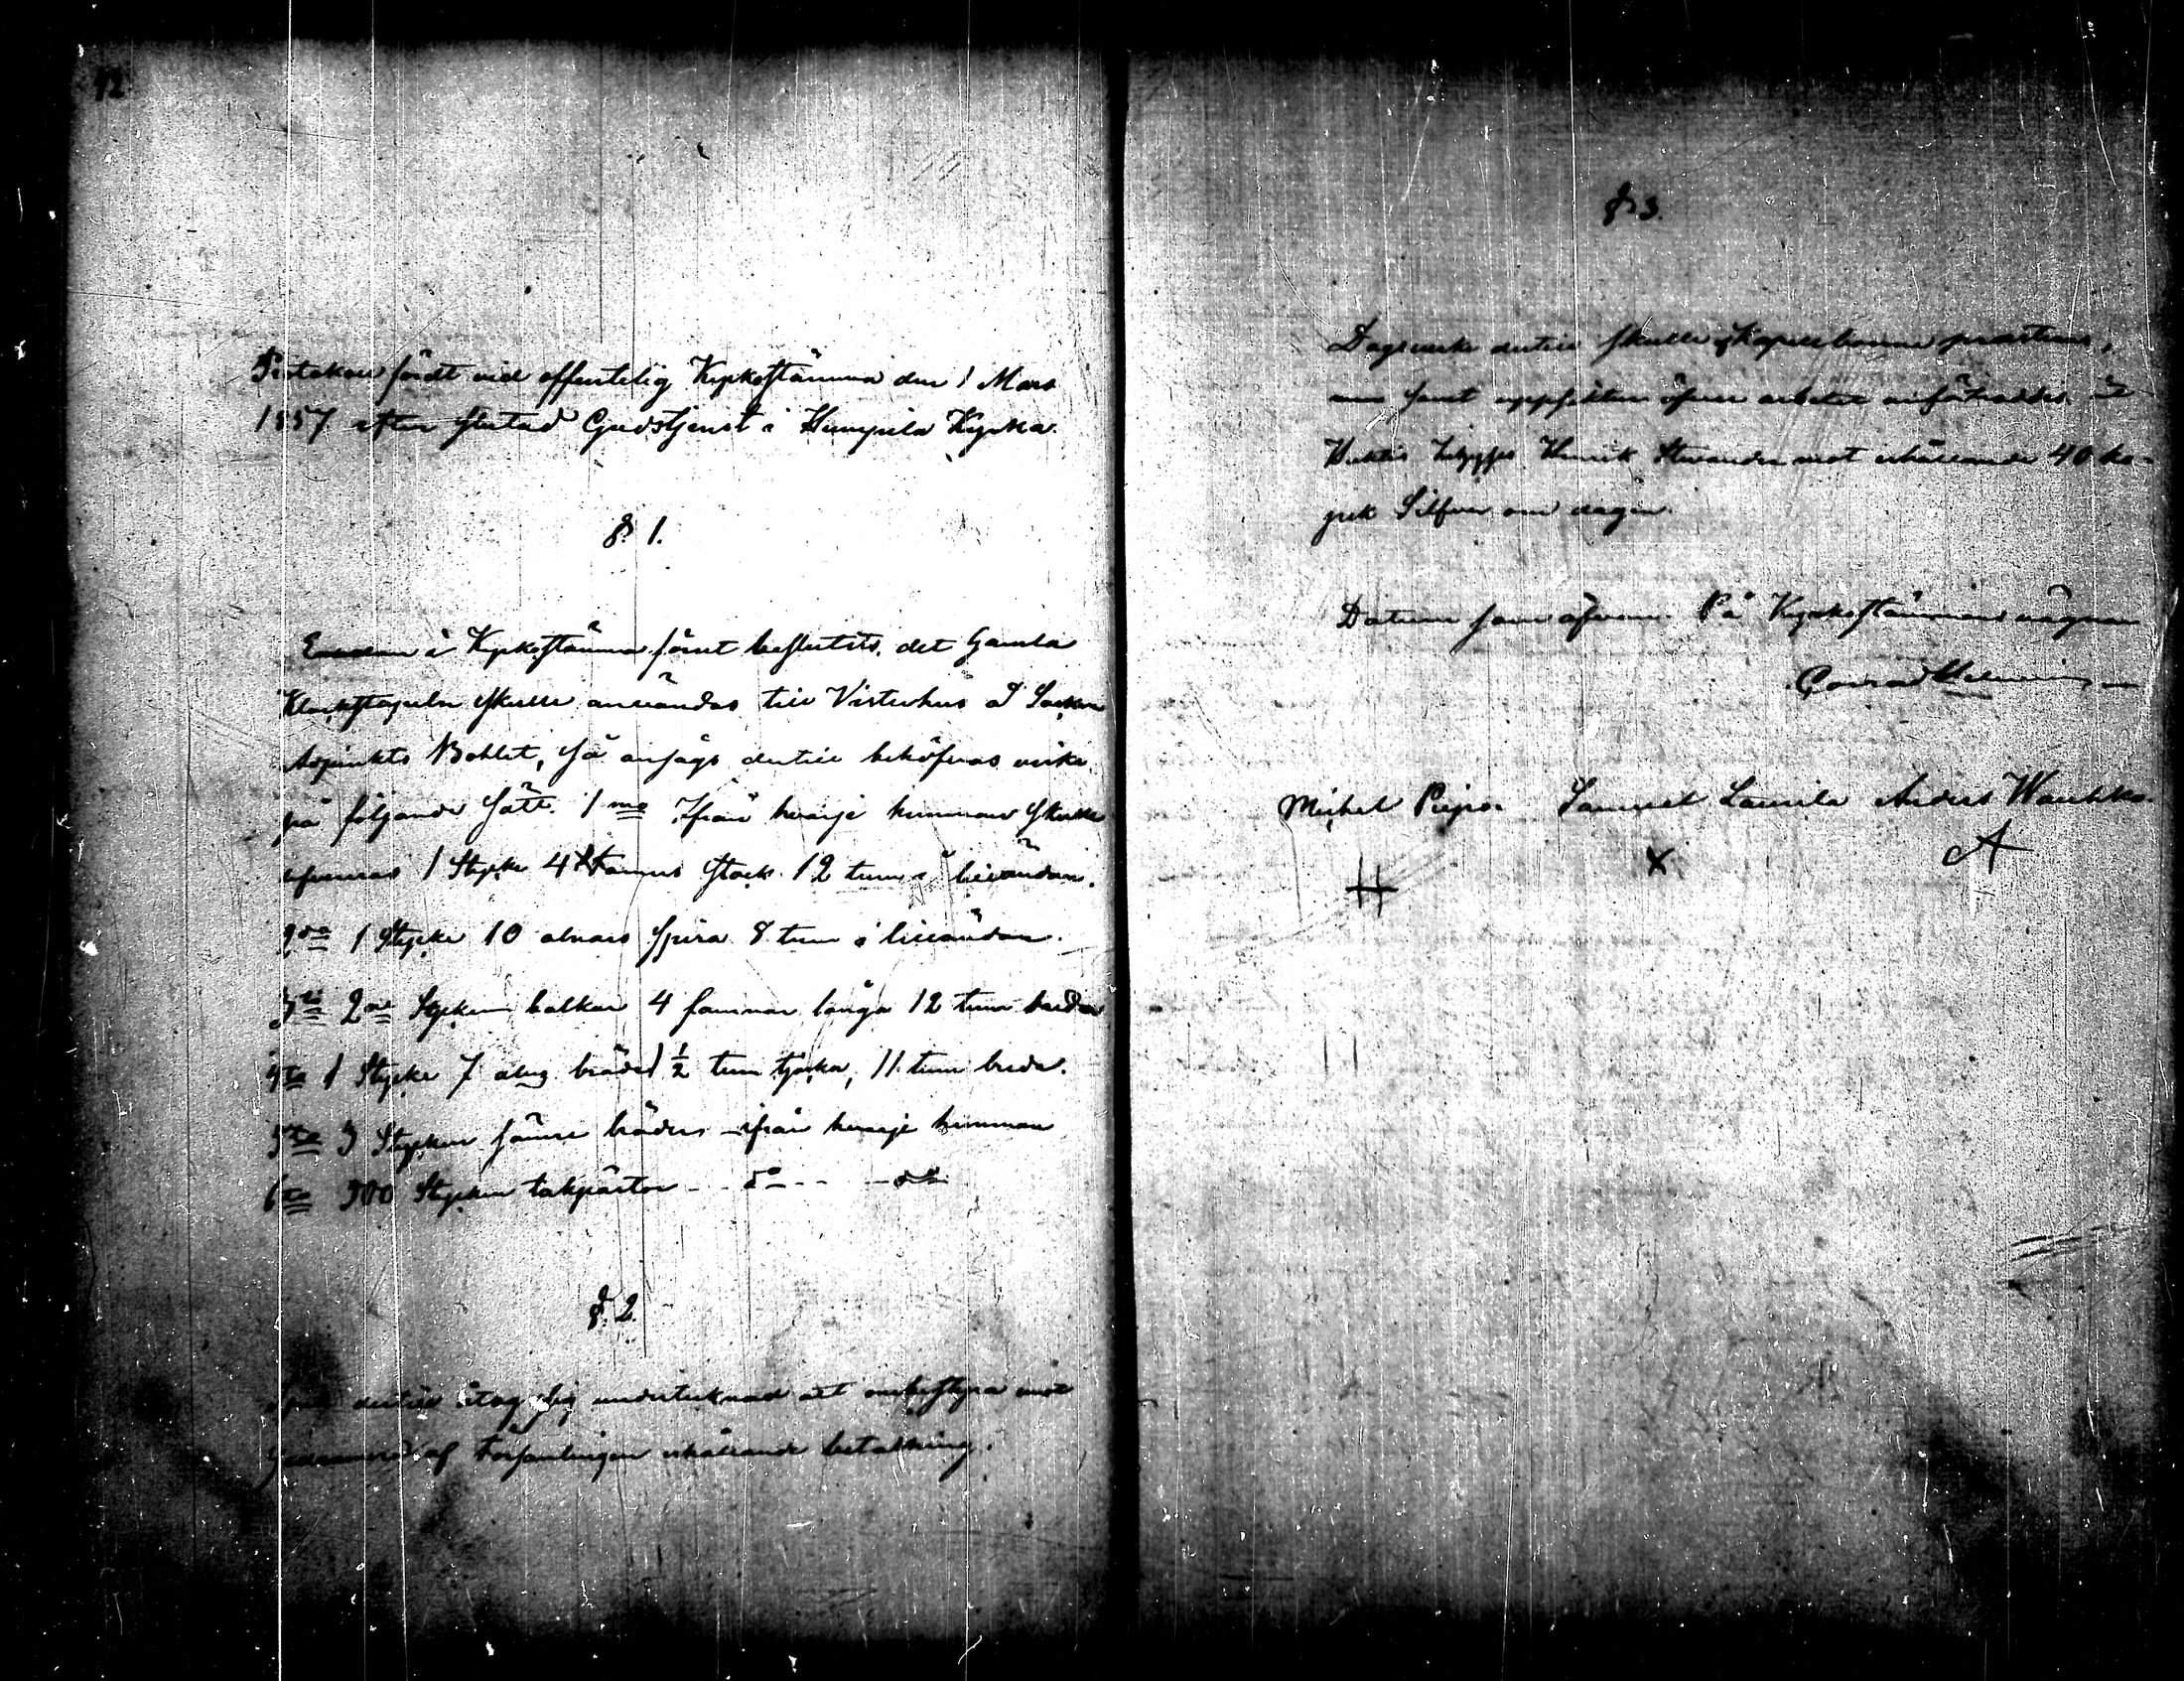 92
Protokoll fördt vid offentelig Kyrkostämma den 1 Mars
1857 efter slutad Gudstjenst i Humpila Kyrka.
§ 1.
Emedan å Kyrkostämma förut beslutits, det Gamla
Klockstapeln skulle användas till Visterhus å Sockne
Adjunkts Bohlet, så ansågs dertill behöfvas virke
på följande sätt. 1mo Ifrån hvarje hemman skulle
1 Stycke 4 famns stock 12 tum i lilländan.
2do 1 Stycke 10 alnars spira 8 tum i lilländan.
3tio 2ne Stycken balkar 4 famnar långa 12 tum breda
4to 1 Stycke 7 alns bräde 1 1/2 tum tjocka, 11 tum breda.
5to 3 Stycken sämre bräder ifrån hvarje hemman
6to 300 Stycken takpärtor - - do - - - do
§. 2.
dertill åtog sig undertecknad att ombestyra mot
af Församlingen erhållande betalning.
§ 3.
Dagsverke dertill skulle Kapellboarne præstera,
samt uppsikten öfver arbetet anförtroddes åt
Henrik mot erhållande 40 ko-
pek Silfver om dagen.
Datum som ofvan. På Kyrkostämmans vägnar
Conrad
Michel Piipo. Samuel Laurila Anders Wauhko.
# X A